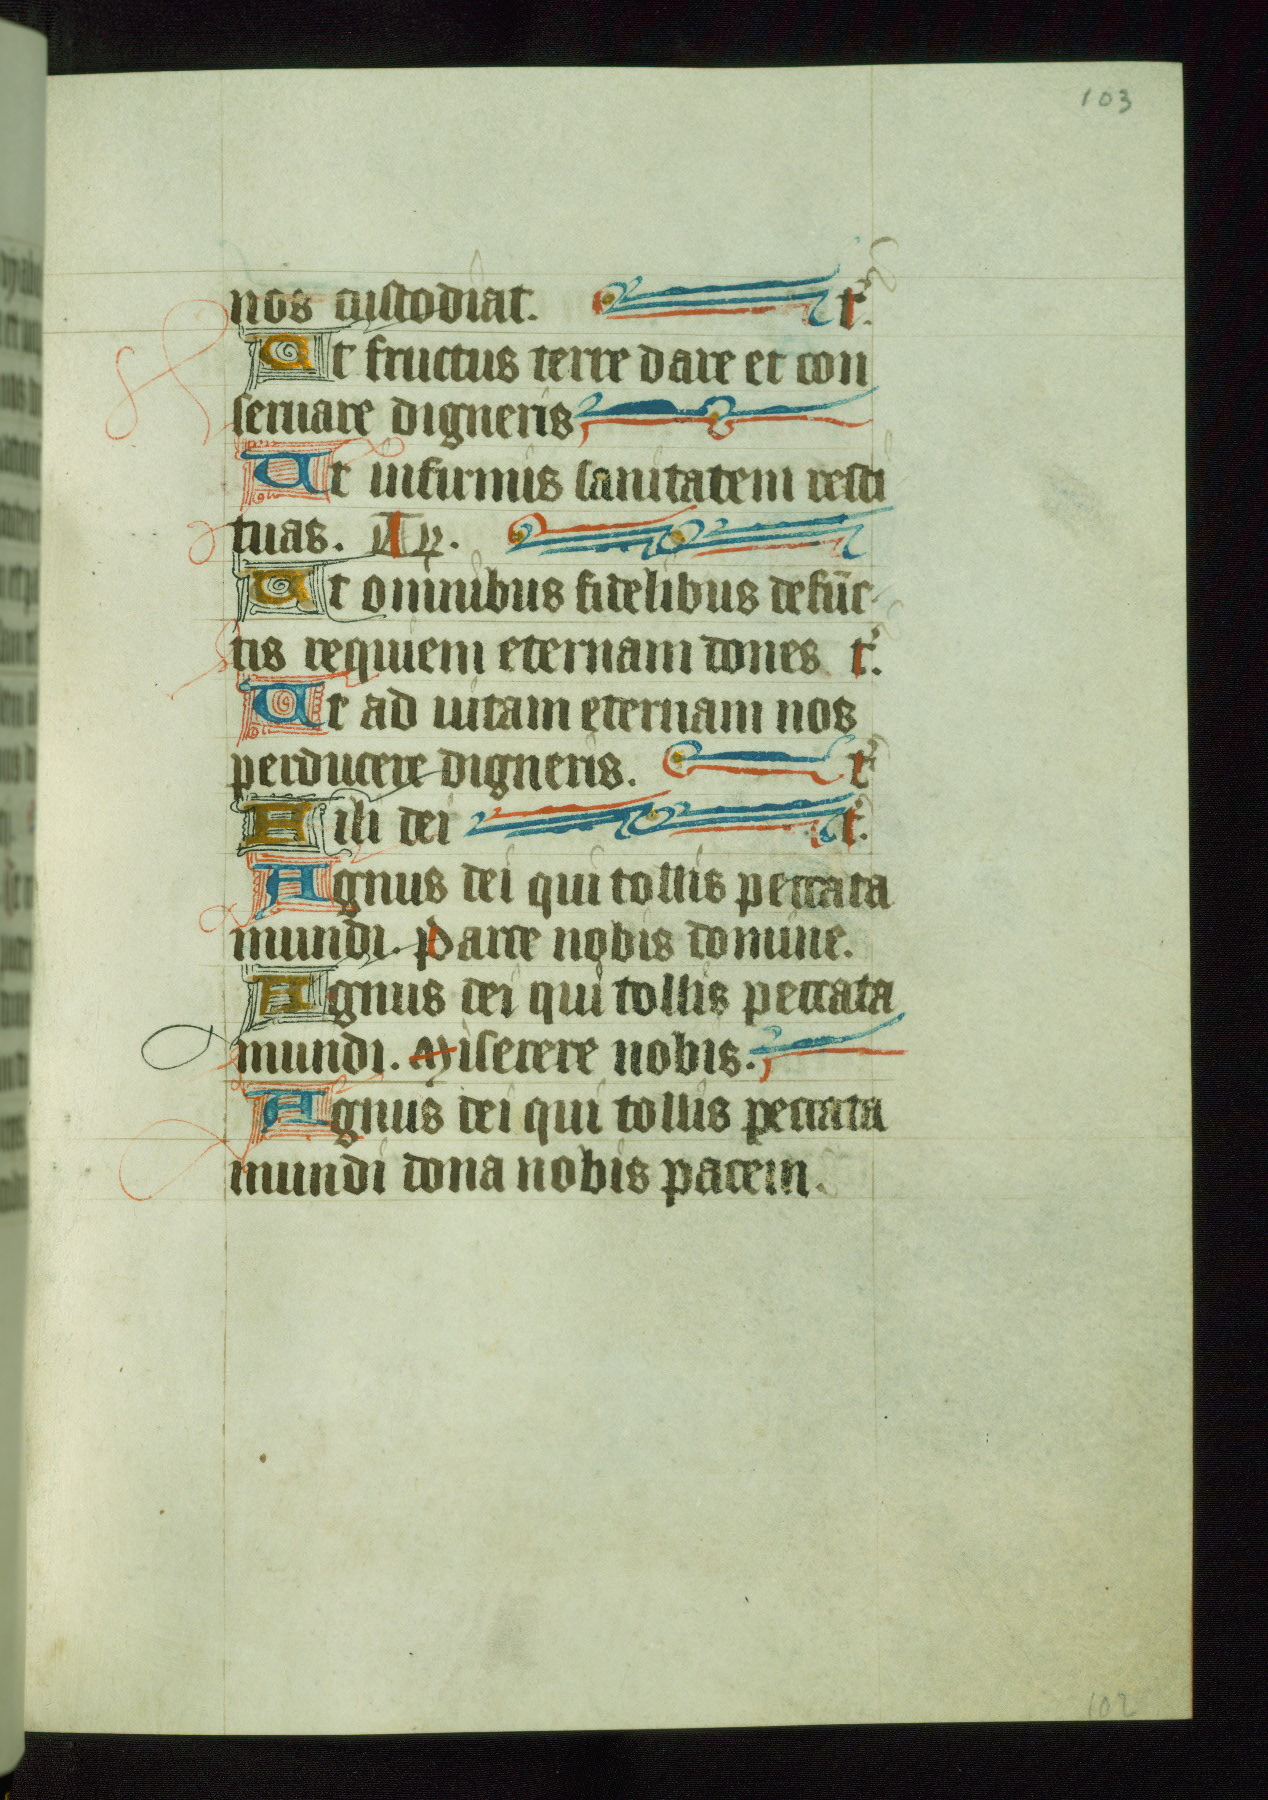 103
nos custodiat. t̉.
Ut fructus terre dare et con
seruare digneris
Ut infirmis sanitatem resti
tuas.
Ut omnibus fidelibus defūc
tis requiem eternam dones t̉.
Ut ad uitam eternam nos
perducere digneris. t̉
Fili dei t̉.
Agnus dei qui tollis peccata
mundi. Parce nobis domine.
Agnus dei qui tollis peccata
mundi. Miserere nobis.
Agnus dei qui tollis peccata
mundi dona nobis pacem.
102